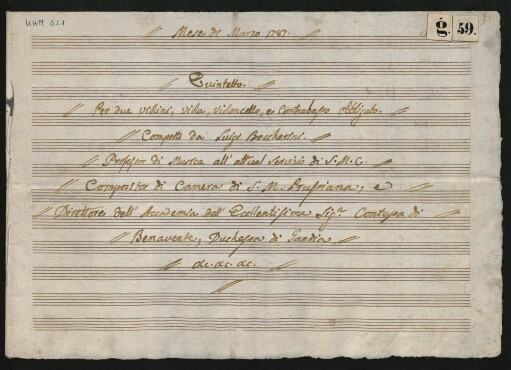 KHM 521
Mese di Marzo 1787.
g. 59.
Quintetto.
Per due violini, viola, violoncello, e Contrabasso obbligato.
Composto da Luigi Boccherini.
Professor di Musica all' attual servizio di S. M. C.
Compositor di Camera di S. M. Prussiana; e
Direttore dell' Accademia dell' Eccellentissima Sig.ra Contessa di
Benavente, Duchessa di Gandia
&c. &c. &c.